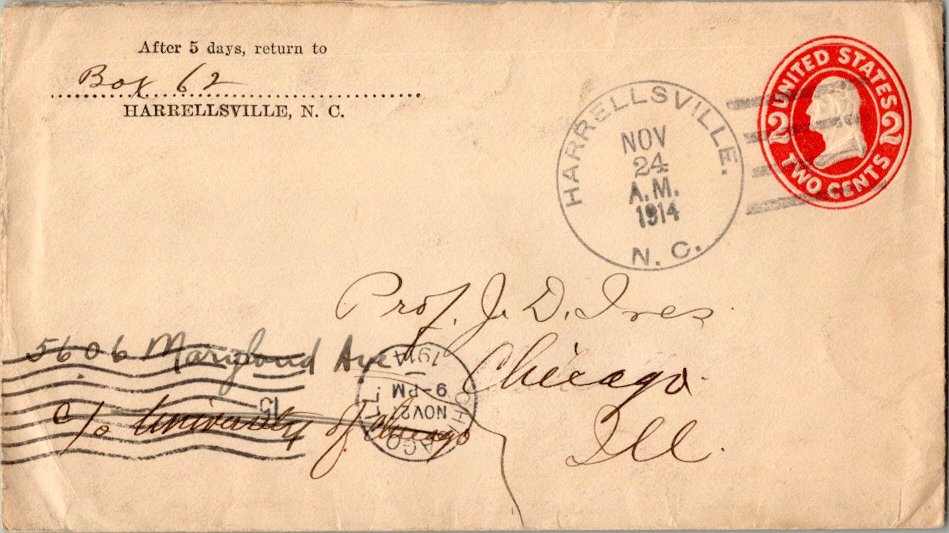 After 5 days, return to
Box 62
HARRELLSVILLE, N. C.
HARRELLSVILLE.
NOV
24
A.M.
1914
N. C.
UNITED STATES
2 2
TWO CENTS
Prof. J. D. Ives
Chicago.
Ill.
5606 Maryland Ave
c/o University of Chicago
CHICAGO
ILL.
NOV2
9-PM
1914
15